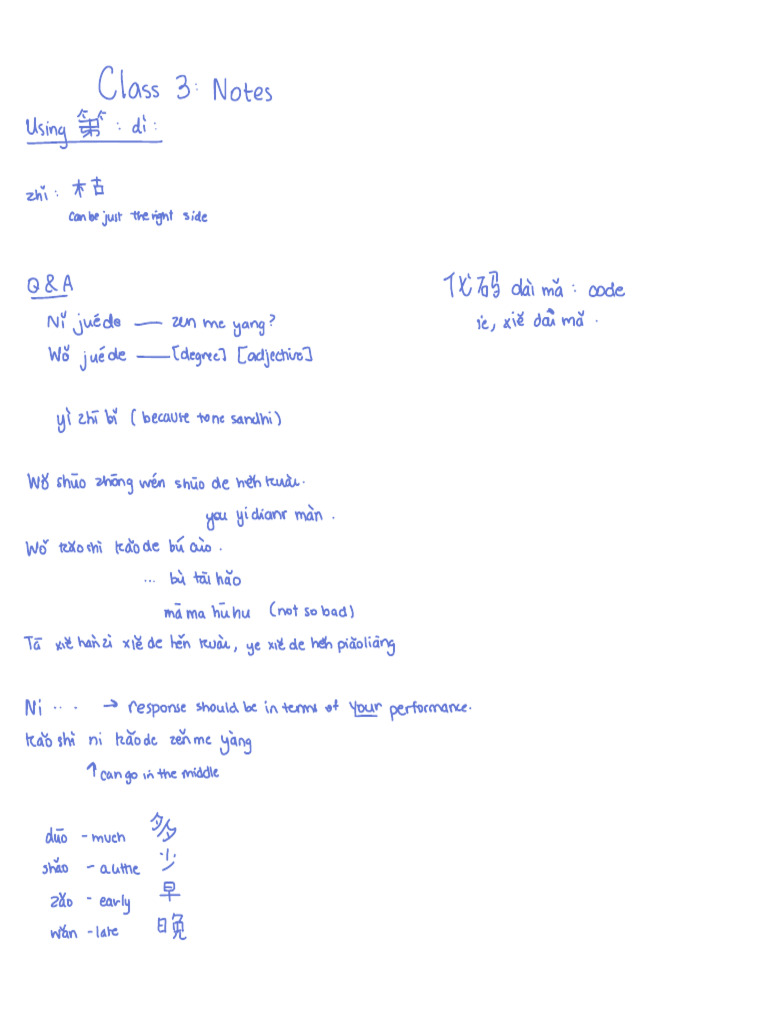 Class 3: Notes
Using 第 : dì :
zhǐ : 枯
can be just the right side
Q & A
Nǐ juéde — zen me yang?
Wǒ juéde — [degree] [adjective]
yì zhī bǐ (because tone sandhi)
Wǒ shuō zhōng wén shuō de hěn kuài.
you yi dianr màn.
Wǒ kǎo shì kǎo de bú cuò.
... bù tài hǎo
mā ma hū hu (not so bad)
Tā xiě hànzì xiě de hěn kuài, ye xiě de hěn piāoliāng
Ni ... → response should be in terms of your performance.
kǎo shì ni kǎo de zěn me yàng
↑ can go in the middle
duō - much 多
shǎo - 少
zǎo - early 早
wǎn - late 晚
代码 dài mǎ : code
ie, xiě dài mǎ.